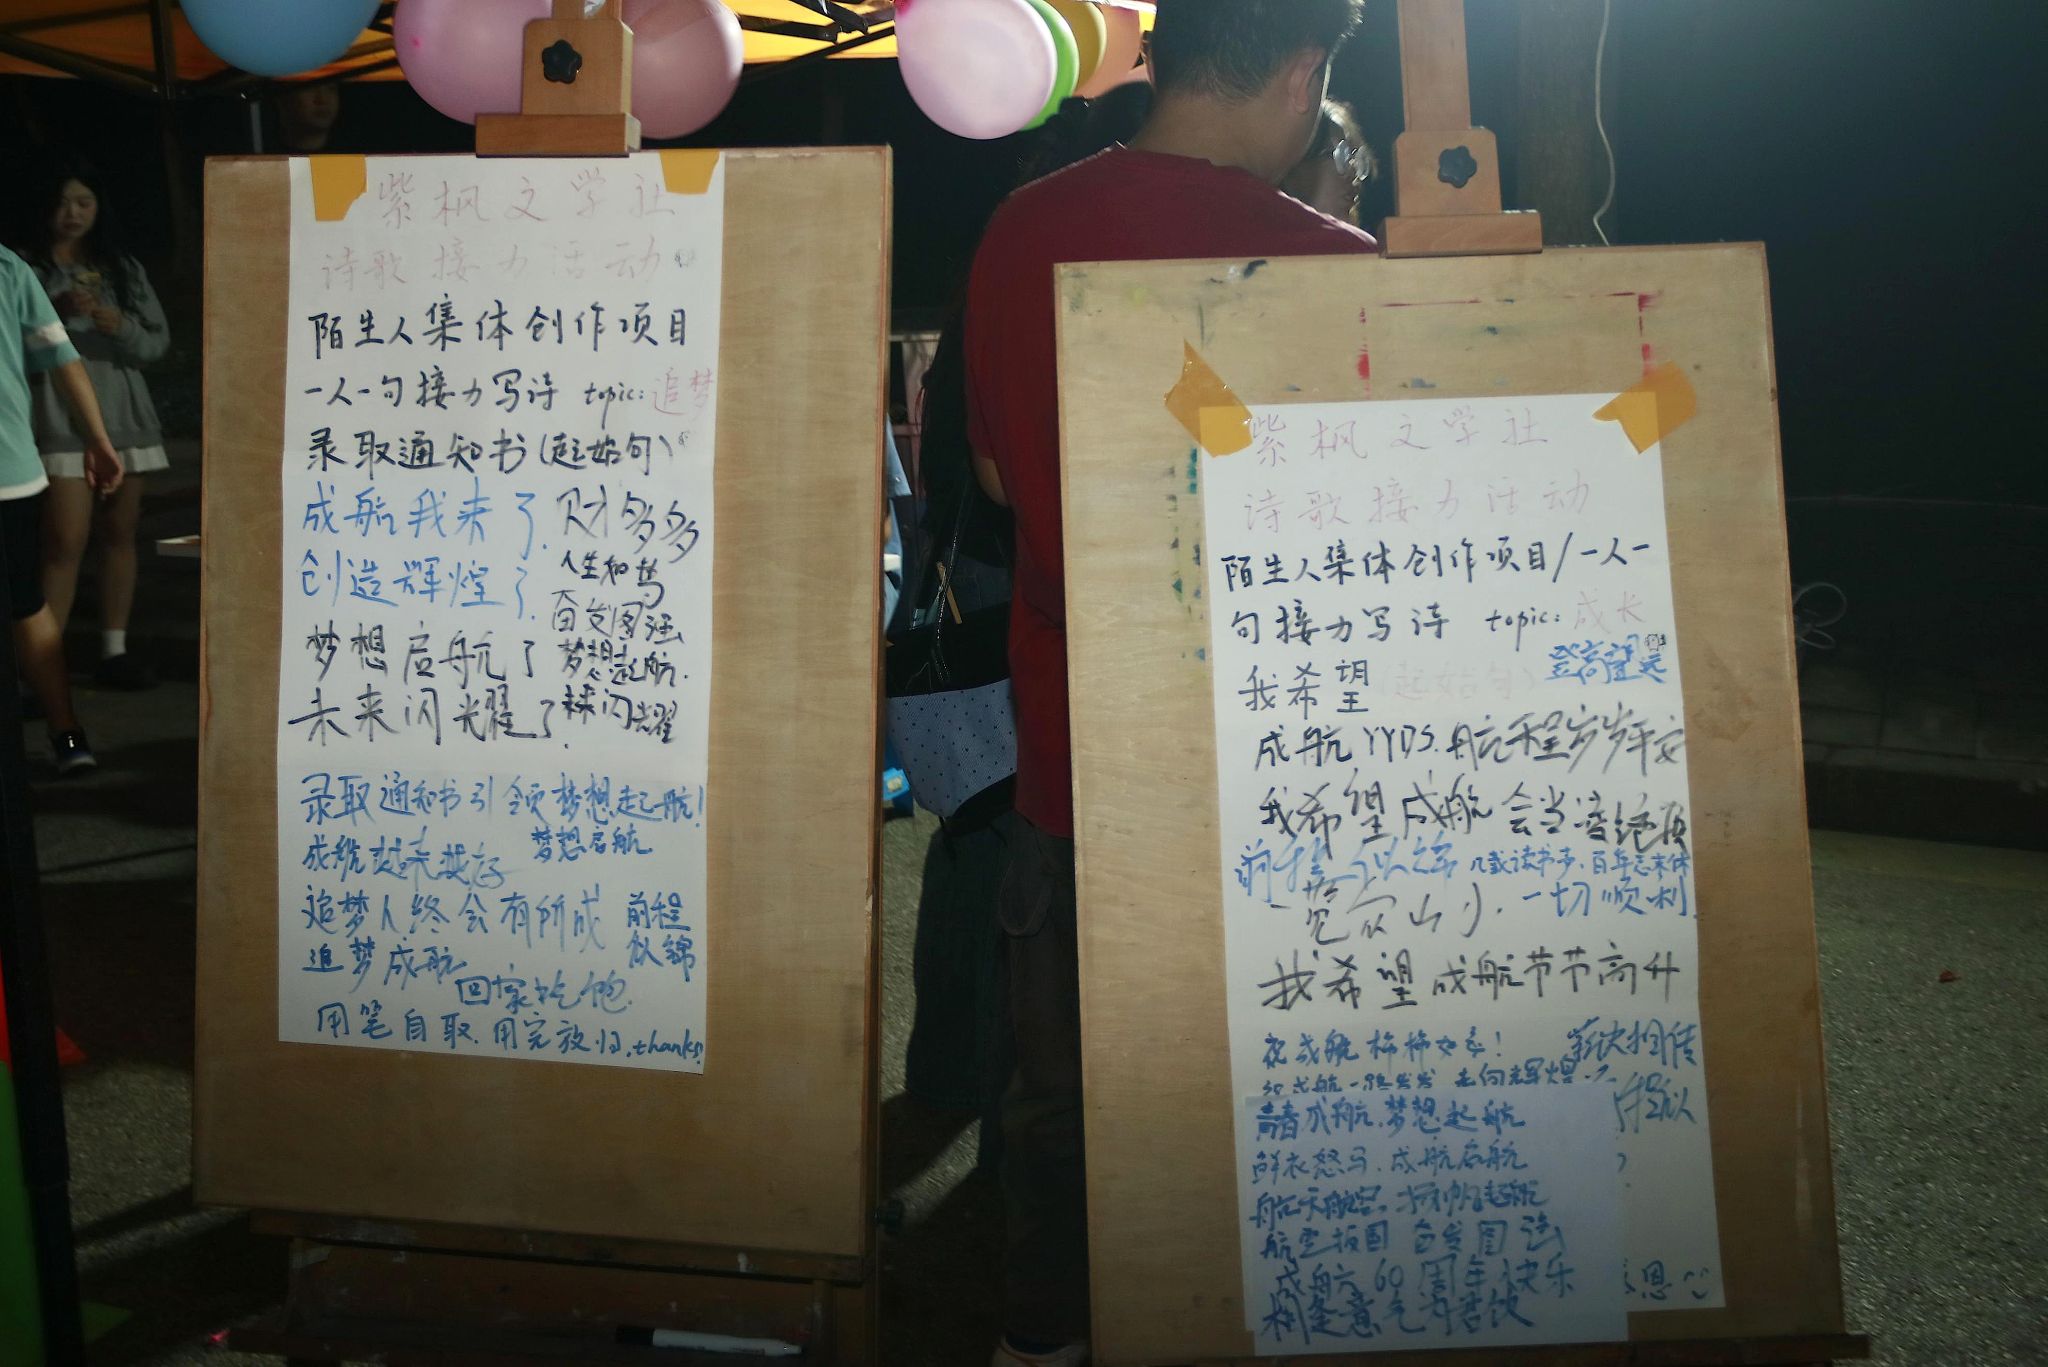 紫枫文学社
诗歌接力活动
陌生人集体创作项目
一人一句接力写诗 topic:追梦
录取通知书(起始句)
成航我来了.
财多多
创造辉煌了.
人生如梦
奋发图强
梦想启航了
梦想起航.
未来闪光耀了.
未来闪光耀
录取通知书引领梦想起航!
成航越来越好
梦想启航
追梦人终会有所成
前程
似锦
追梦成航
回家吃饱.
用笔自取.用完放归.thanks!
紫枫文学社
诗歌接力活动
陌生人集体创作项目/一人一
句接力写诗 topic:成长
登高望远
我希望(起始句)
成航YYDS.航程岁岁平安
我希望成航会当凌绝顶
几载读书梦.百年志未休
一览众山小.
一切顺利.
我希望成航节节高升
祝成航柿柿如意!
薪火相传
祝成航一路生花 走向辉煌
程似
青春成航.梦想起航
鲜衣怒马.成航启航
航天航空.扬帆起航
航空报国 奋发图强
成航六60周年快乐
相逢意气为君饮
恩